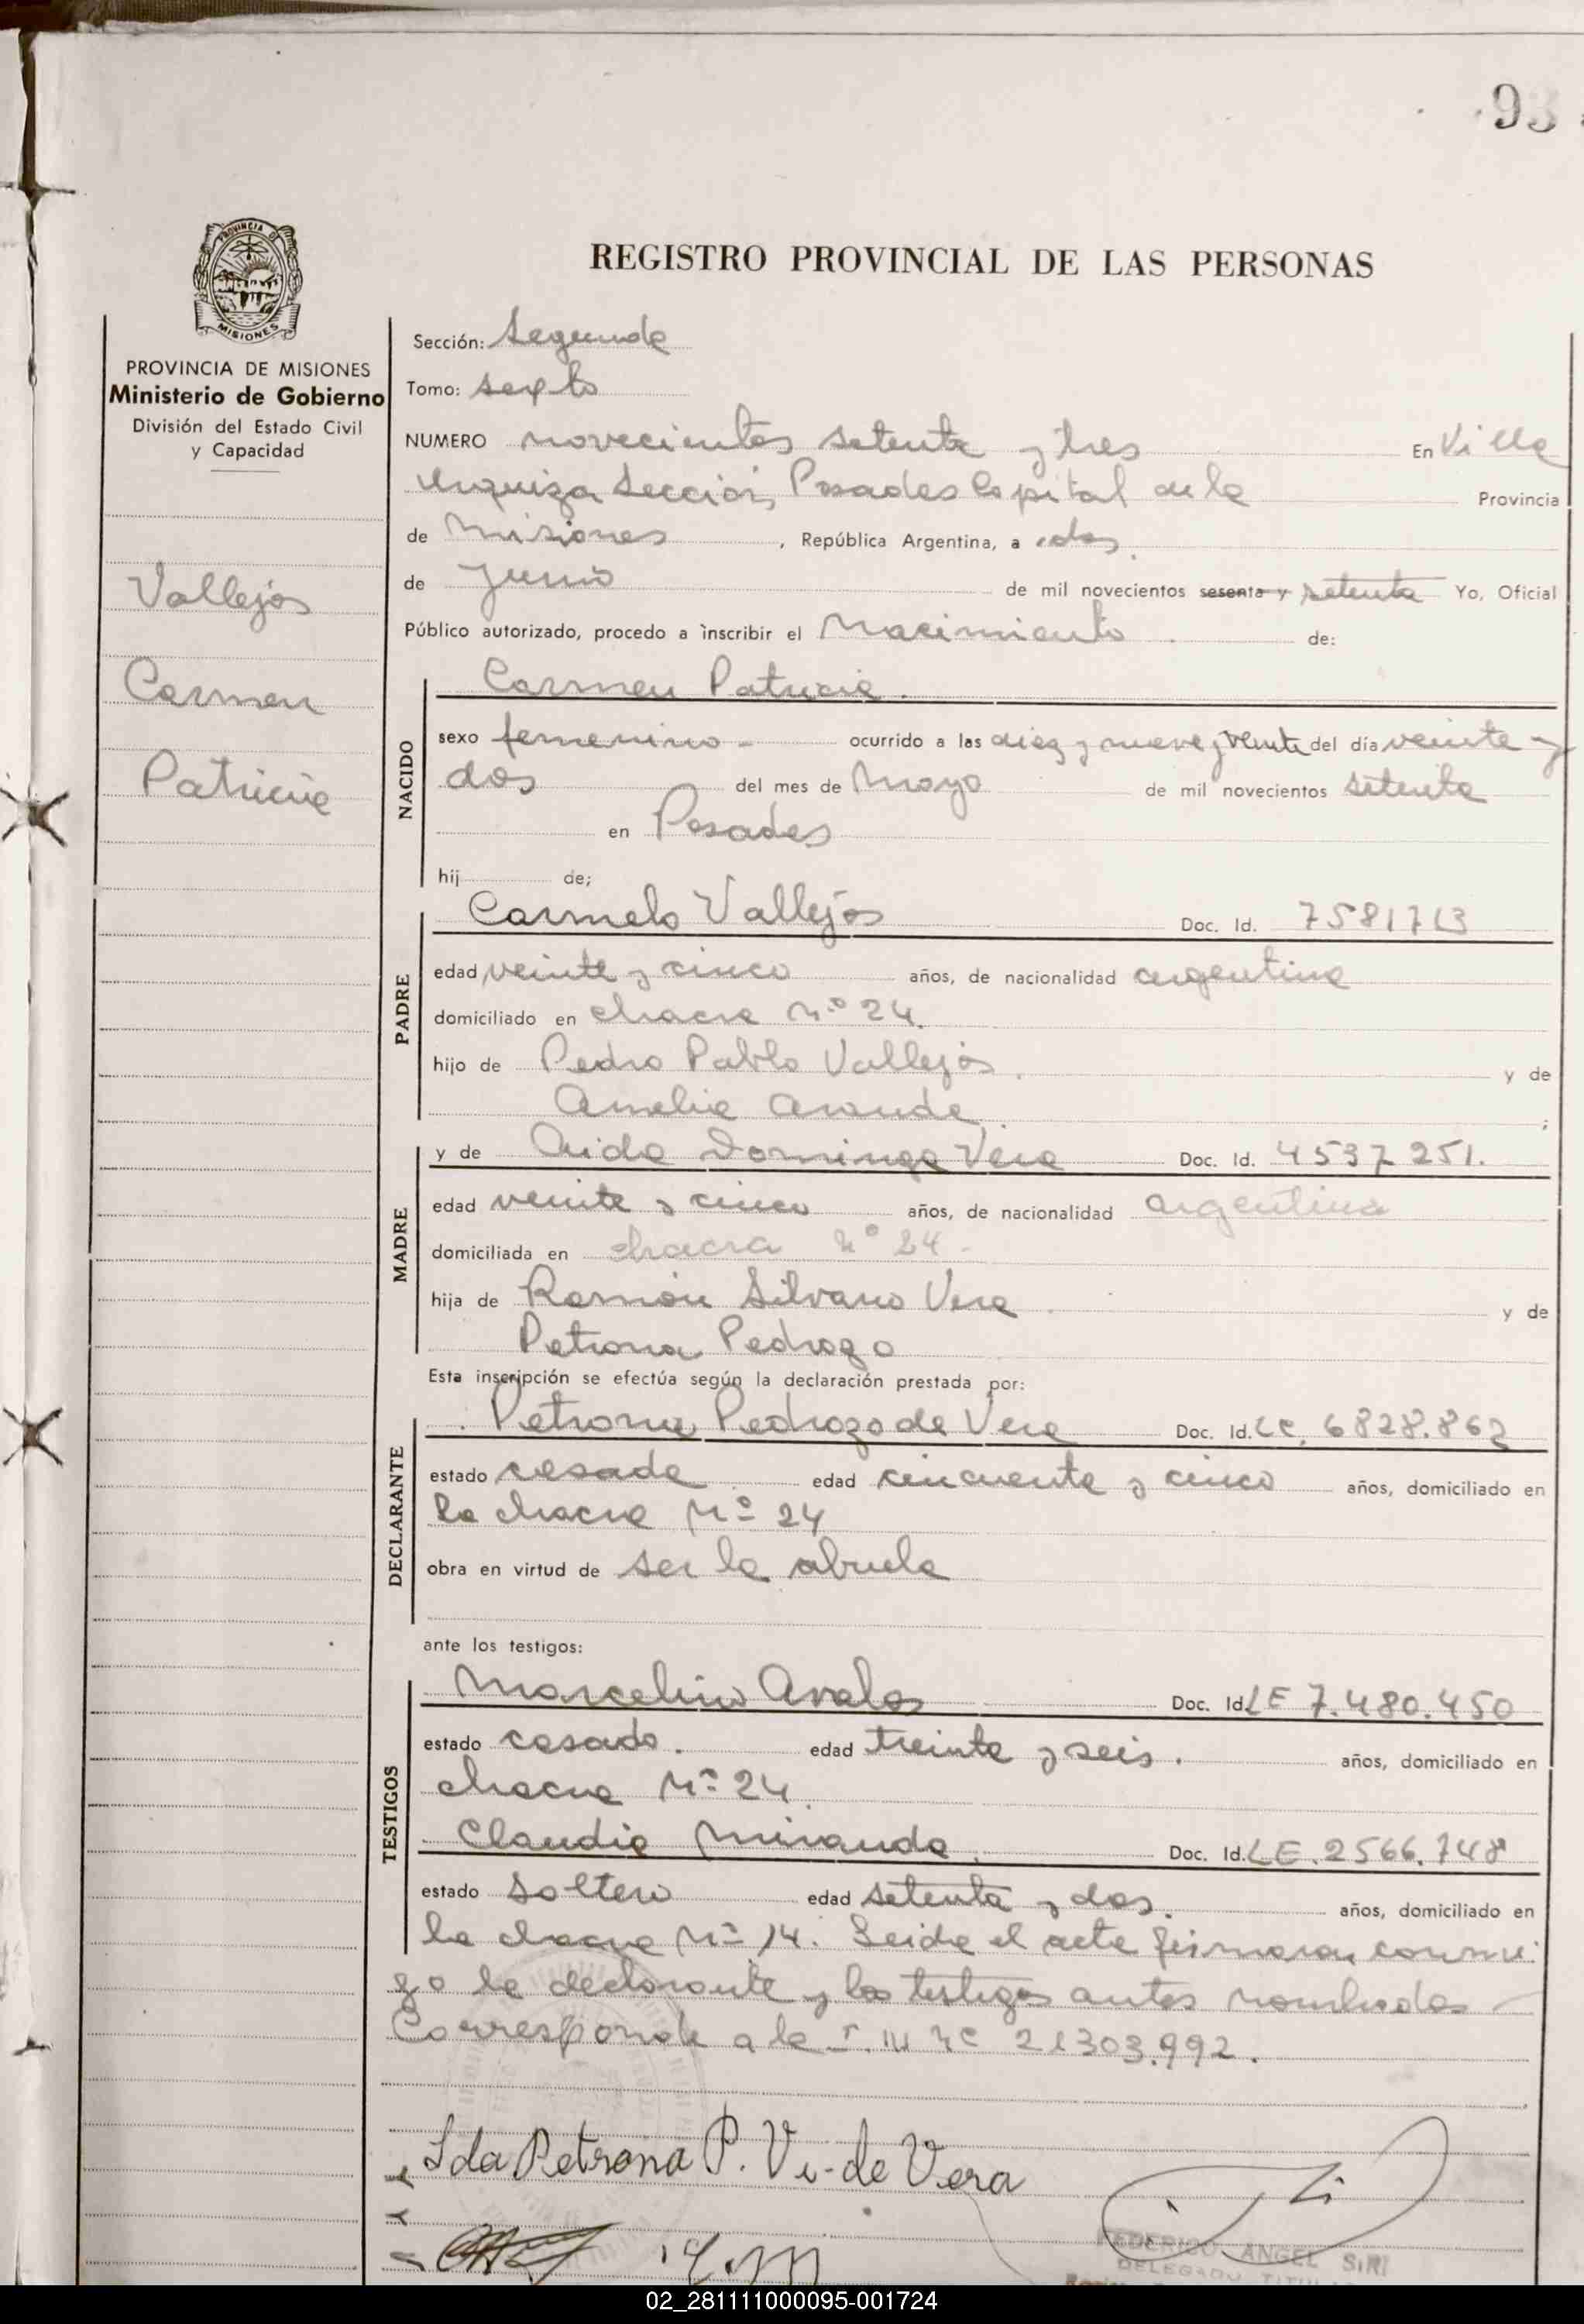 93
PROVINCIA DE
MISIONES
REGISTRO PROVINCIAL DE LAS PERSONAS
PROVINCIA DE MISIONES
Ministerio de Gobierno
División del Estado Civil
y Capacidad
Vallejos
Carmen
Patricia
Sección: Segunda
Tomo: sexto
NUMERO novecientos setenta y tres En Villa
Urquiza Sección Posadas Capital de la Provincia
de Misiones, República Argentina, a dos
de Junio de mil novecientos sesenta y setenta Yo, Oficial
Público autorizado, procedo a inscribir el Nacimiento de:
NACIDO
Carmen Patricia
sexo femenino - ocurrido a las diez y nueve y veinte del día veinte y
dos del mes de Mayo de mil novecientos setenta
en Posadas
hij de;
PADRE
Carmelo Vallejos Doc. Id. 7581713
edad veinte y cinco años, de nacionalidad argentina
domiciliado en chacra N.º 24.
hijo de Pedro Pablo Vallejos. y de
Amelia Aranda ;
MADRE
y de Aida Dominga Vera Doc. Id. 4537251.
edad veinte y cinco años, de nacionalidad argentina
domiciliada en chacra Nº 24 -
hija de Ramón Silvano Vera y de
Petrona Pedrozo
Esta inscripción se efectúa según la declaración prestada por:
DECLARANTE
Petrona Pedrozo de Vera Doc. Id. LC. 6828.862
estado casada edad cincuenta y cinco años, domiciliado en
la chacra Nº 24
obra en virtud de ser la abuela
ante los testigos:
TESTIGOS
Marcelino Avalos Doc. Id. LE 7.480.450
estado casado. edad treinta y seis. años, domiciliado en
chacra Nº 24
Claudio Miranda. Doc. Id. LE. 2566.748
estado Soltero edad setenta y dos. años, domiciliado en
la chacra Nº 14. Leida el acta firmaran conmi-
go la declarante y los testigos antes nombrados
Corresponde a la 21303.992.
Ida Petrona P. Vi. de Vera
FEDERICO ANGEL SIRI
DELEGADO TITULAR
02_281111000095-001724